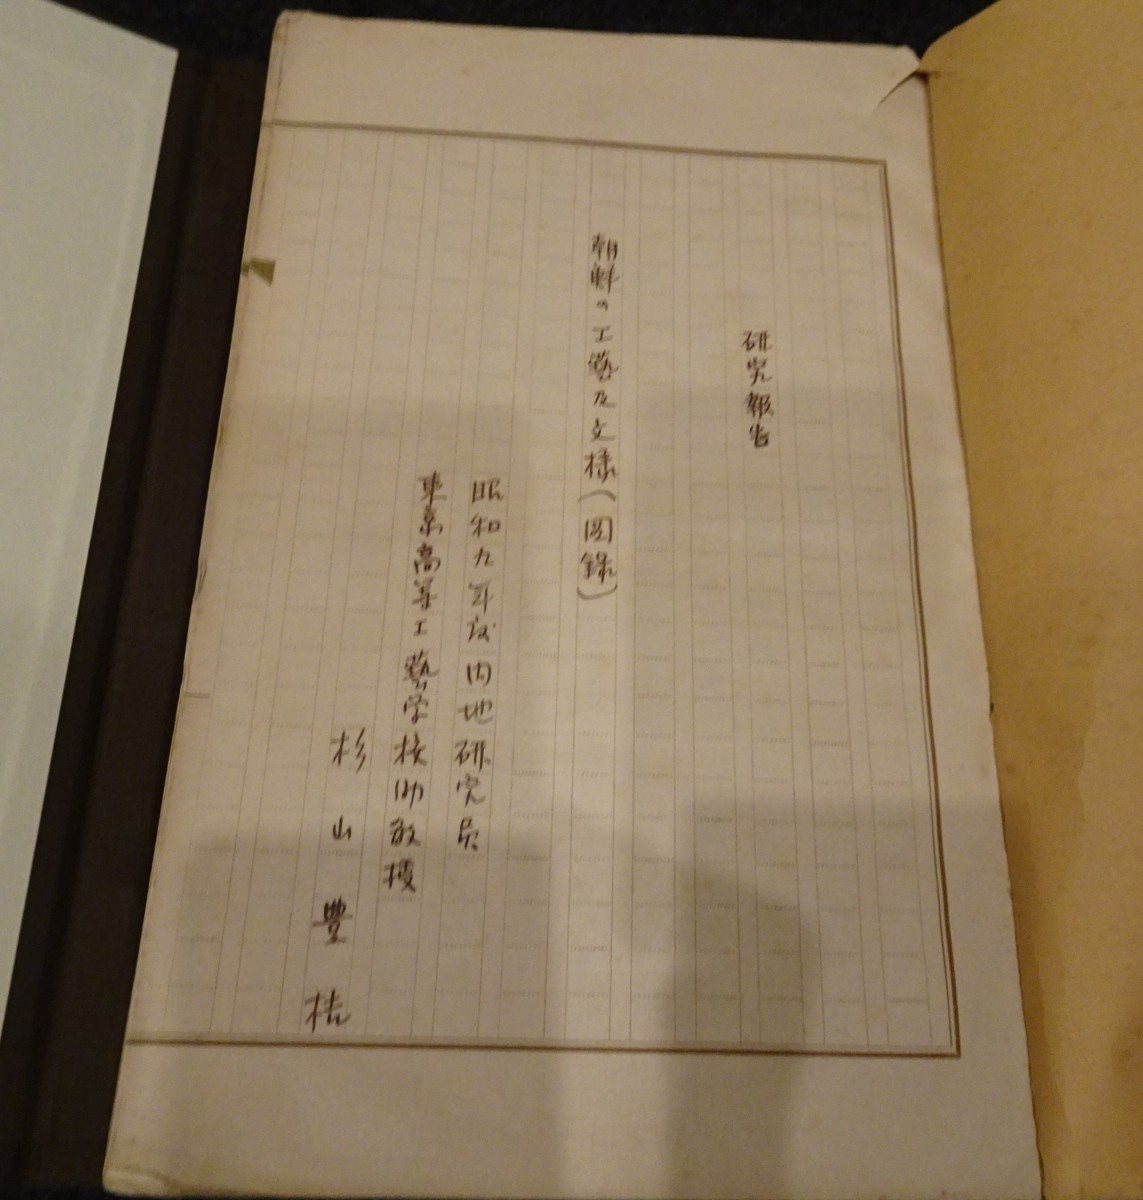 研究報告
朝鮮の工藝及文様(図錄)
昭和九年度内地研究員
東京高等工藝学校助教授
杉山豊桔